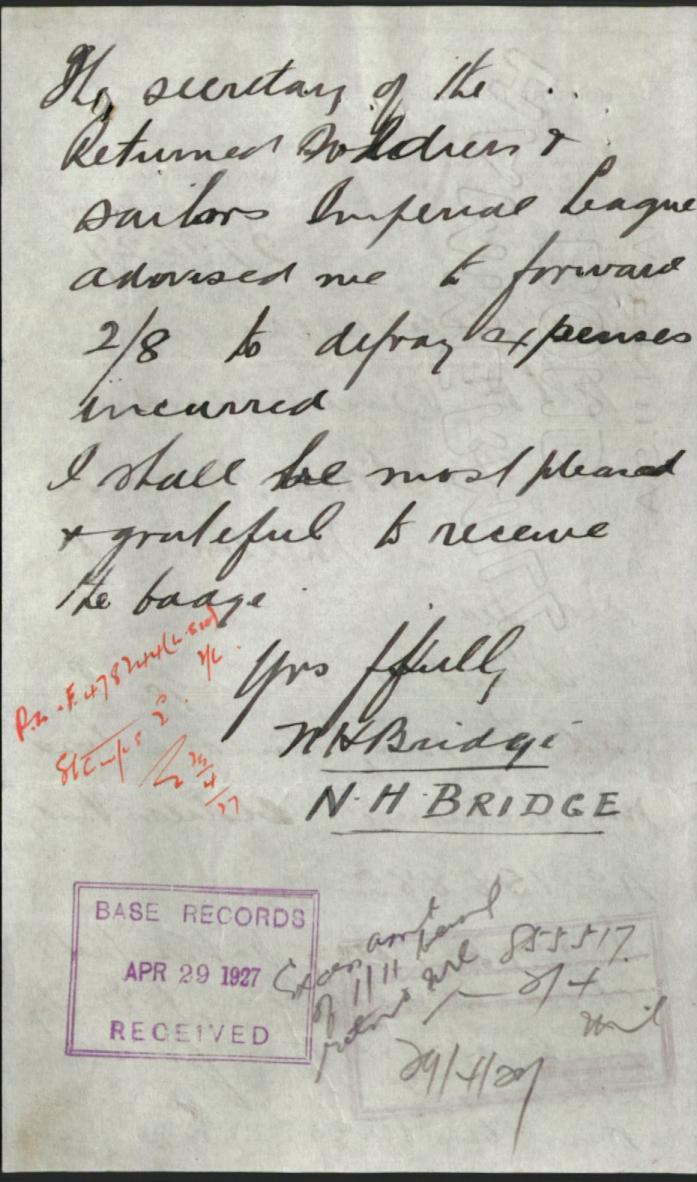 The secretary of the
Returned Soldiers &
Sailors Imperial League
advised me to forward
2/8 to defray expenses
incurred
I shall be most pleased
& grateful to receive
the badge
Yrs ffully
N H Bridge
N. H. BRIDGE
Stamps 2
BASE RECORDS
APR 29 1927
RECEIVED
855517
29/4/27